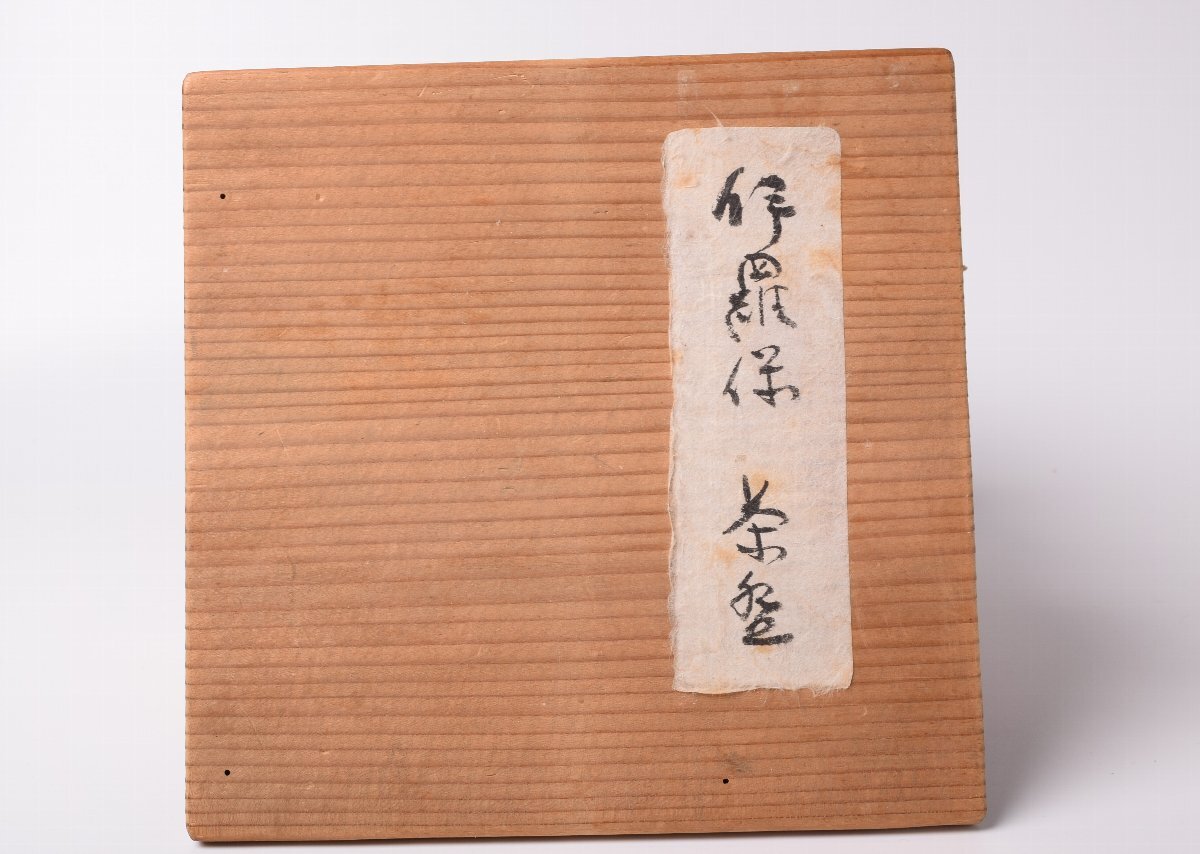 伊羅保 茶盌